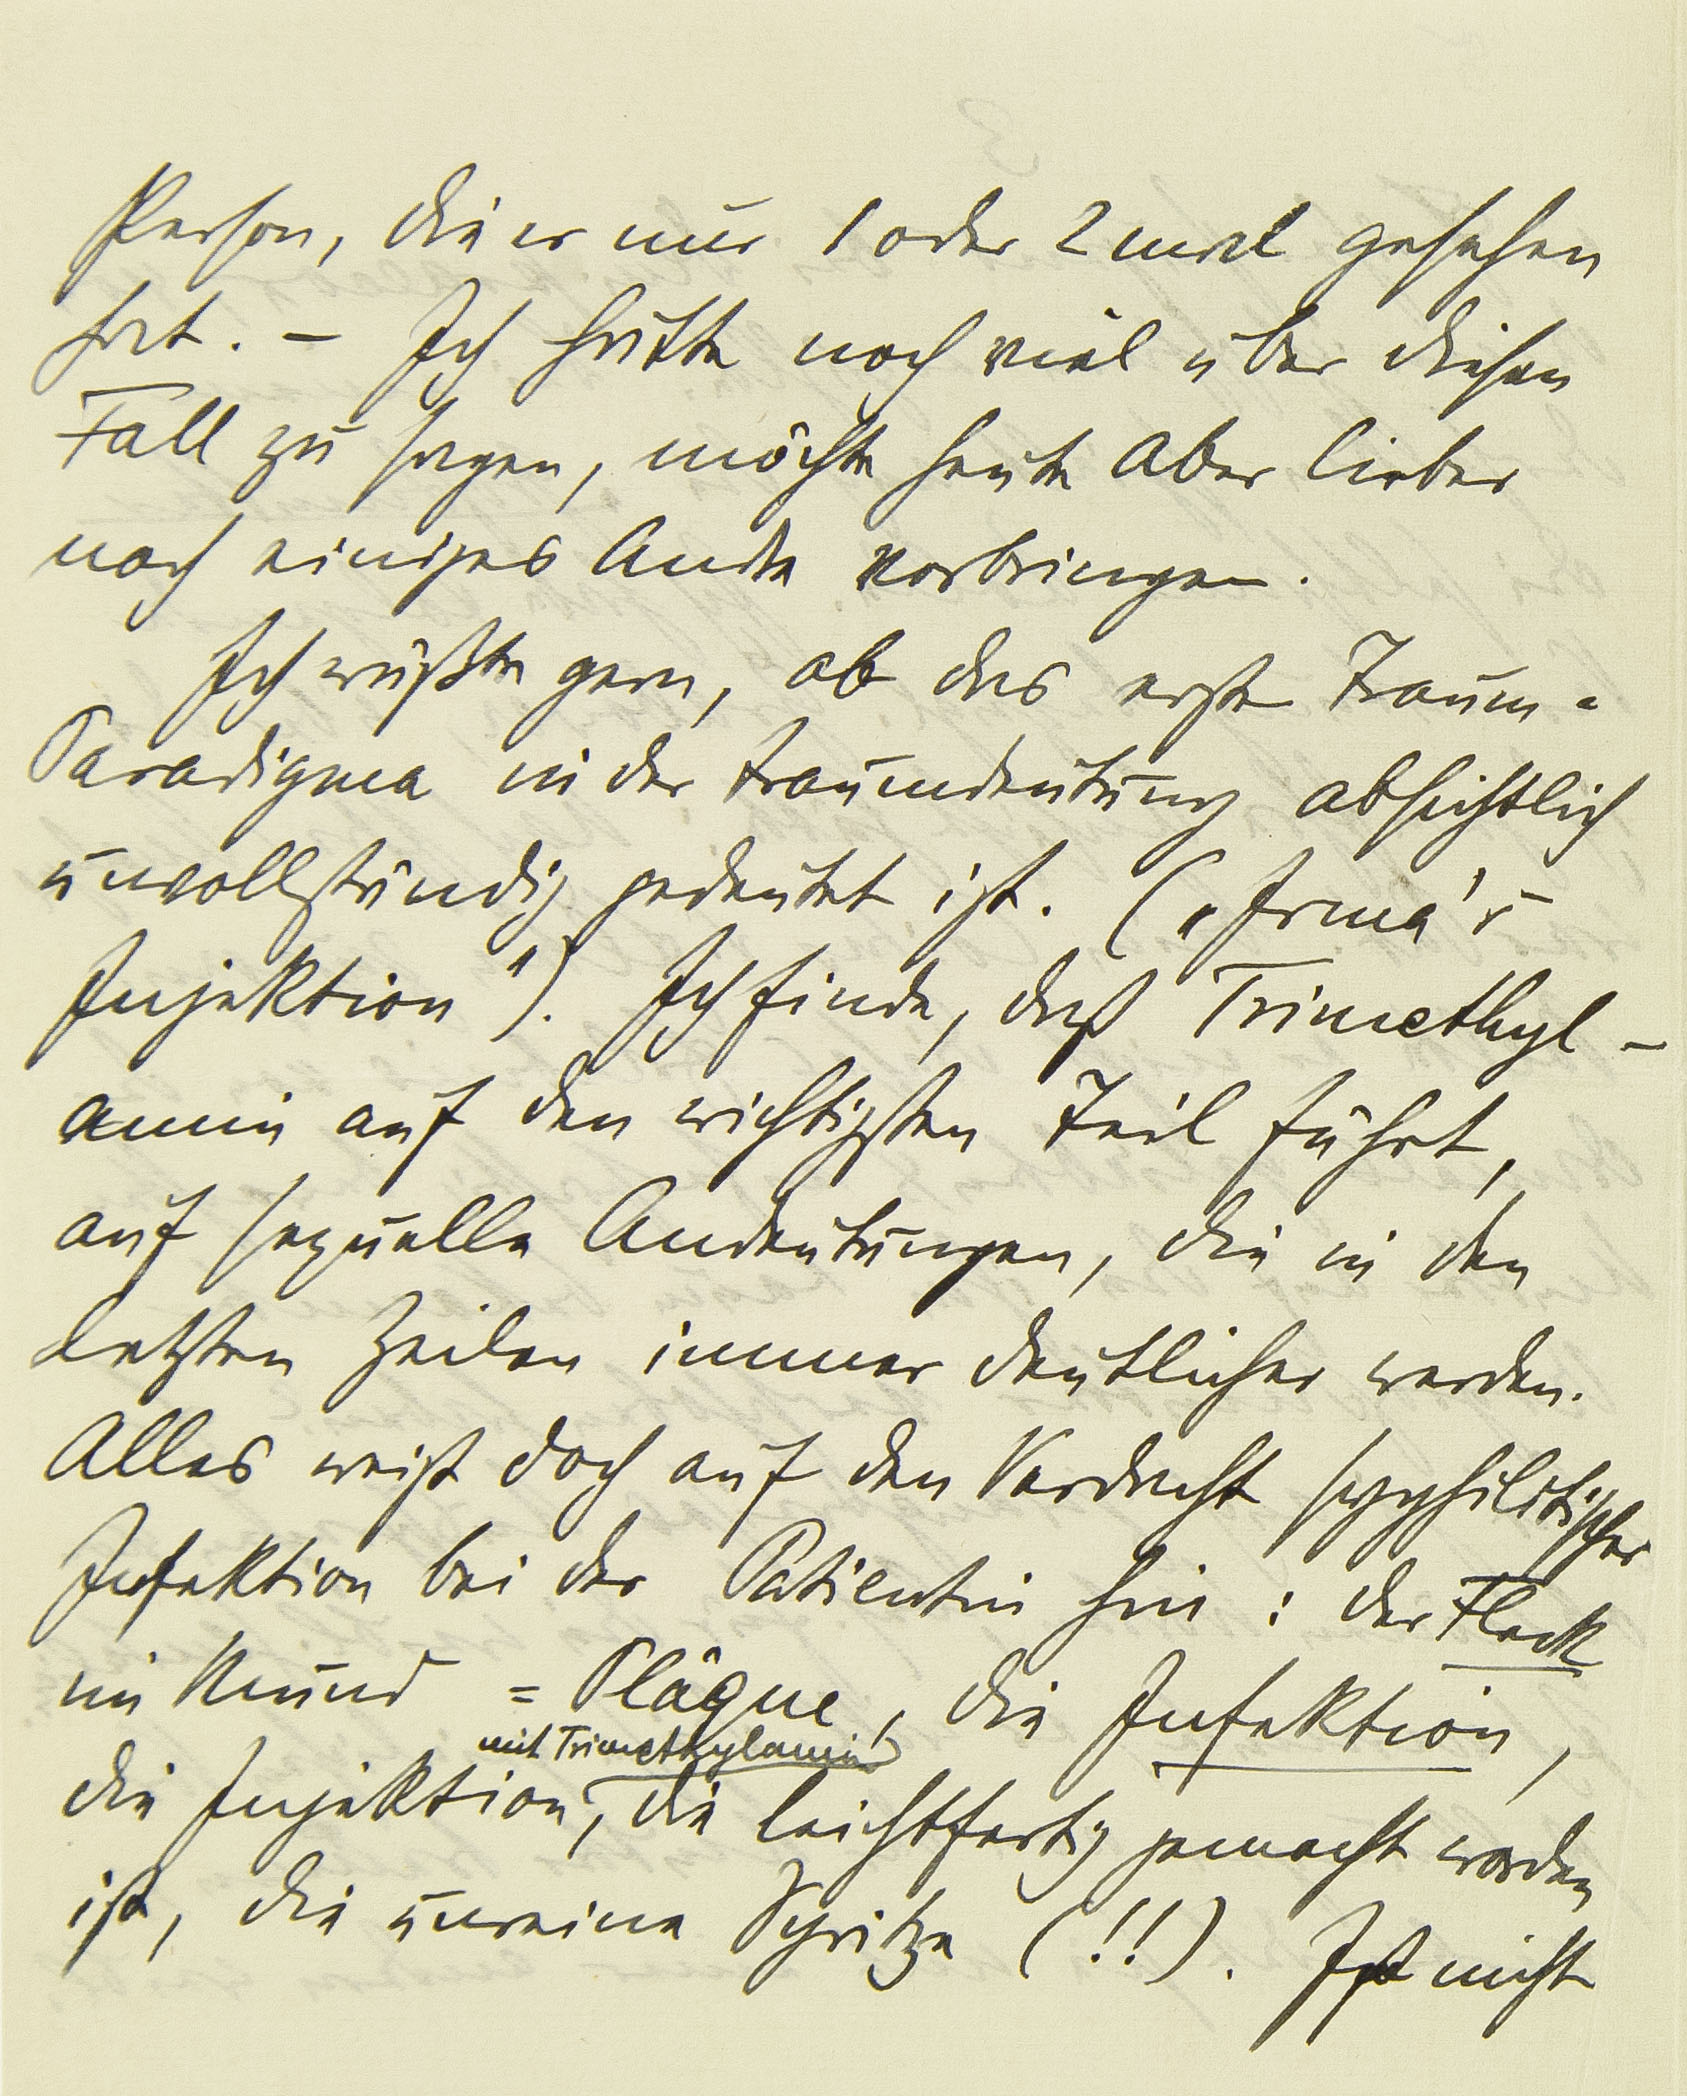 Person, die er nur 1 oder 2 mal gesehen
hat. – Ich hätte noch viel über diesen
Fall zu sagen, möchte heute aber lieber
noch einiges Andre vorbringen.
Ich wüßte gern, ob das erste Traum=
Paradigma in der Traumdeutung absichtlich
unvollständig gedeutet ist. („Irma's
Injektion"). Ich finde, daß Trimethyl-
amin auf den wichtigsten Teil führt,
auf sexuelle Andeutungen, die in den
letzten Zeilen immer deutlicher werden.
Alles weist doch auf den Verdacht syphilitischer
Infektion bei der Patientin hin: der Fleck
im Mund = Plaque, die Infektion,
mit Trimethylamin
die Injektion, die leichtfertig gemacht worden
ist, die unreine Spritze (!!). Ist nicht